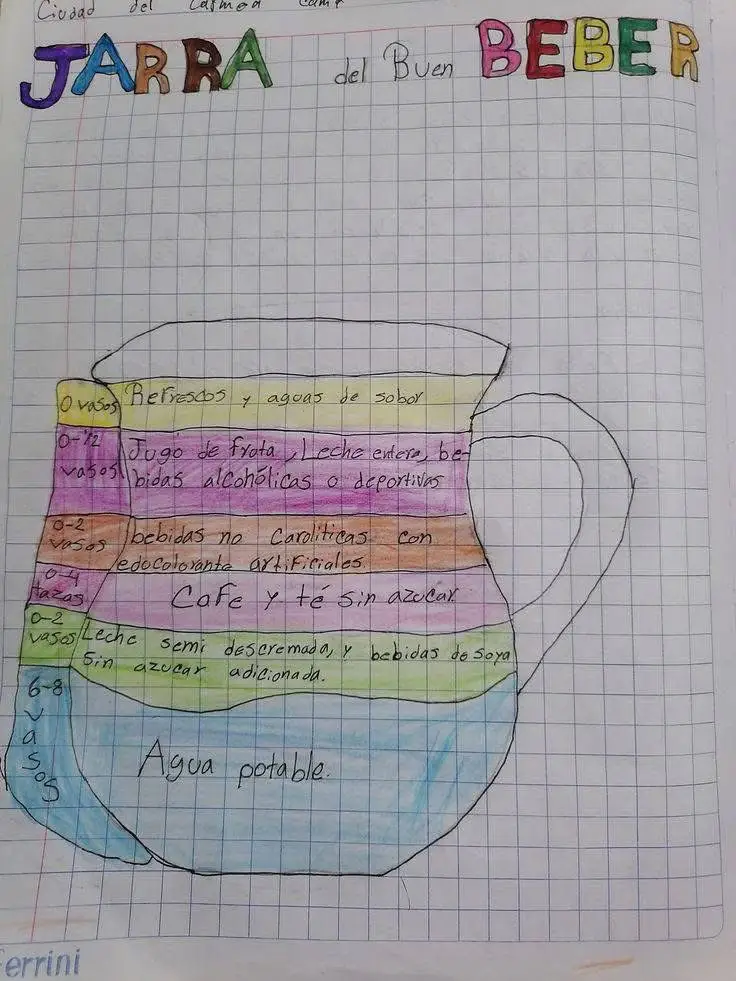 Ciudad del Carmen Camp
JARRA del Buen BEBER
0 vasos
Refrescos y aguas de sobor
0-1/2
vasos
Jugo de frota, Leche entera, be-
bidas alcohólicas o deportivas
0-2
vasos
bebidas no Caroliticas con
edocolorante artificiales.
0-4
tazas
Cafe y té sin azucar.
0-2
vasos
Leche semi descremada, y bebidas de soya
Sin azucar adicionada.
6-8
vasos
Agua potable.
errini